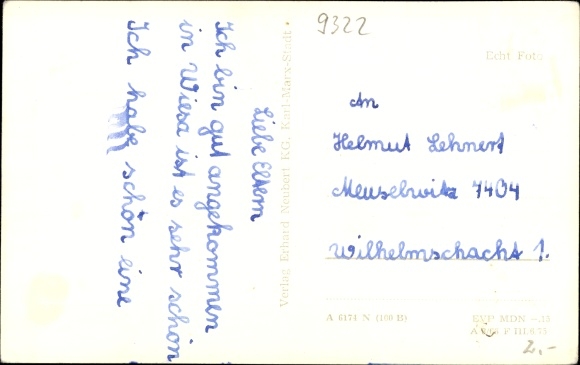 9322
Echt Foto
Liebe Eltern
Ich bin gut angekommen
in Wiesa ist es sehr schön
Ich habe schön eine
Verlag Erhard Neubert KG, Karl-Marx-Stadt
An
Helmut Lehnert
Meuselwitz 7404
Wilhelmschacht 1.
A 6174 N (100 B)
EVP MDN
2,-